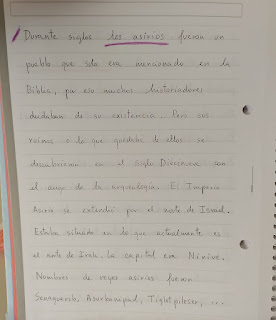 Durante siglos los asirios fueron un
pueblo que solo era mencionado en la
Biblia, por eso muchos historiadores
dudaban de su existencia. Pero sus
ruinas o lo que quedaba de ellos se
descubrieron en el siglo Diecinueve con
el auge de la arqueología. El Imperio
Asirio se extendió por el norte de Israel.
Estaba situado en lo que actualmente es
el norte de Irak. La capital era Nínive.
Nombres de reyes asirios fueron
Senaquerib, Asurbanipal, Tiglatpileser, ...